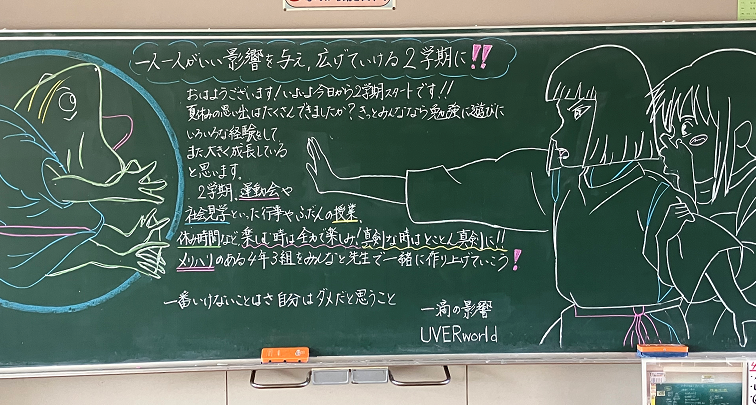 一人一人がいい影響を与え,広げていける2学期に!!
おはようございます!いよいよ今日から2学期スタートです!!
夏休みの思い出はたくさんできましたか?きっとみんななら勉強に遊びに
いろいろな経験をして
また大きく成長している
と思います。
2学期、運動会や
社会見学といった行事や、ふだんの授業、
休み時間など楽しむ時は全力で楽しみ!真剣な時はとことん真剣に!!
メリハリのある4年3組をみんなと先生で一緒に作り上げていこう!
一番いけないことはさ自分はダメだと思うこと
一滴の影響
UVERworld